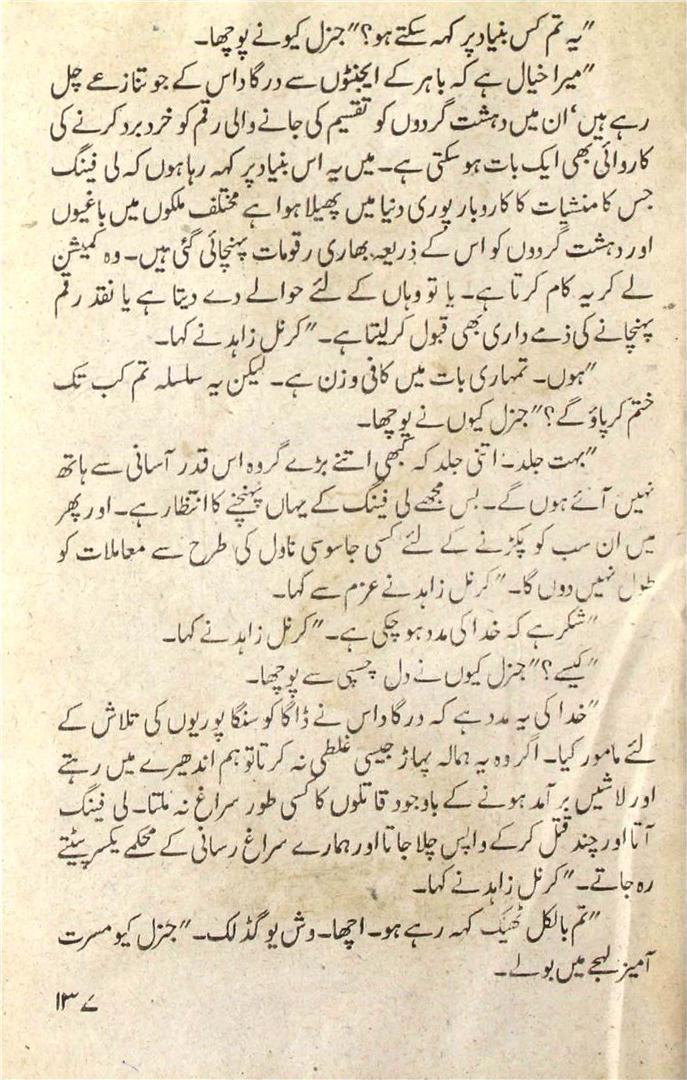 "یہ تم کس بنیاد پر کہہ سکتے ہو؟" جنرل کیو نے پوچھا۔
"میرا خیال ہے کہ باہر کے ایجنٹوں سے درگاداس کے جو تنازعے چل
رہے ہیں، ان میں دہشت گردوں کو تقسیم کی جانے والی رقم کو خرد برد کرنے کی
کاروائی بھی ایک بات ہو سکتی ہے۔ میں یہ اس بنیاد پر کہہ رہا ہوں کہ لی فینگ
جس کا منشیات کا کاروبار پوری دنیا میں پھیلا ہوا ہے مختلف ملکوں میں باغیوں
اور دہشت گردوں کو اس کے ذریعہ بھاری رقومات پہنچائی گئی ہیں۔ وہ کمیشن
لے کر یہ کام کرتا ہے۔ یا تو وہاں کے لئے حوالے دے دیتا ہے یا نقد رقم
پہنچانے کی ذمے داری بھی قبول کر لیتا ہے۔" کرنل زاہد نے کہا۔
"ہوں۔ تمہاری بات میں کافی وزن ہے۔ لیکن یہ سلسلہ تم کب تک
ختم کر پاؤ گے؟" جنرل کیوں نے پوچھا۔
"بہت جلد۔ اتنی جلد کہ کبھی اتنے بڑے گروہ اس قدر آسانی سے ہاتھ
نہیں آئے ہوں گے۔ بس مجھے لی فینگ کے یہاں پہنچنے کا انتظار ہے۔ اور پھر
میں ان سب کو پکڑنے کے لئے کسی جاسوسی ناول کی طرح سے معاملات کو
طول نہیں دوں گا۔" کرنل زاہد نے عزم سے کہا۔
"شکر ہے کہ خدا کی مدد ہو چکی ہے۔" کرنل زاہد نے کہا۔
"کیسے؟" جنرل کیوں نے دل چسپی سے پوچھا۔
"خدا کی یہ مدد ہے کہ درگاداس نے ڈاگا کو سنگاپوریوں کی تلاش کے
لئے مامور کیا۔ اگر وہ یہ ہمالہ پہاڑ جیسی غلطی نہ کرتا تو ہم اندھیرے میں رہتے
اور لاشیں برآمد ہونے کے باوجود قاتلوں کا کسی طور سراغ نہ ملتا۔ لی فینگ
آتا اور چند قتل کر کے واپس چلا جاتا اور ہمارے سراغ رسانی کے محکمے یکسر پیٹتے
رہ جاتے۔" کرنل زاہد نے کہا۔
"تم بالکل ٹھیک کہہ رہے ہو۔ اچھا۔ وش یو گڈ لک۔" جنرل کیو مسرت
آمیز لہجے میں بولے۔
۱۳۷